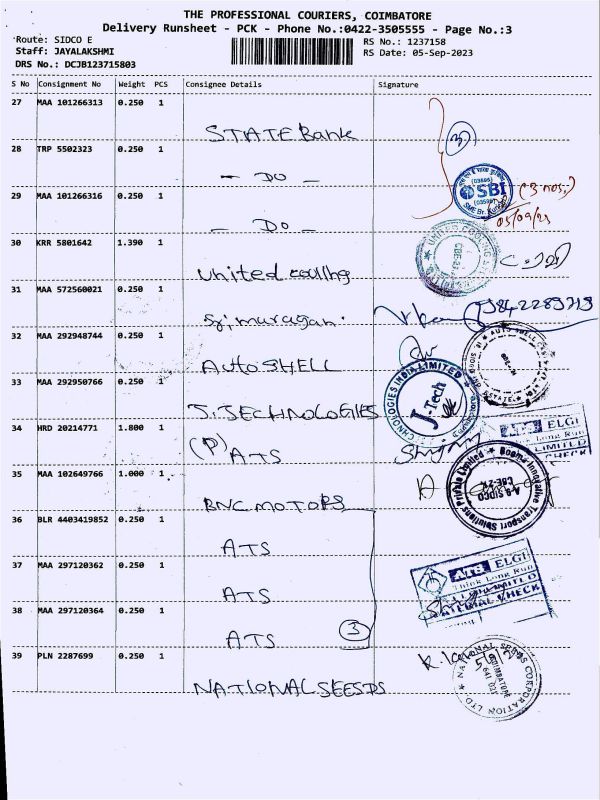 THE PROFESSIONAL COURIERS, COIMBATORE
Delivery Runsheet - PCK - Phone No.:0422-3505555 - Page No.:3
Route: SIDCO E
RS No.: 1237158
Staff: JAYALAKSHMI
RS Date: 05-Sep-2023
DRS No.: DCJB123715803
S No Consignment No Weight PCS Consignee Details Signature
27 MAA 101266313 0.250 1
STATE Bank
3
28 TRP 5502323 0.250 1
- DO -
SBI
05/09/23
29 MAA 101266316 0.250 1
- DO -
30 KRR 5801642 1.390 1
United cooling
31 MAA 572560021 0.250 1
Sri murugan.
32 MAA 292948744 0.250 1
AutoSHELL
33 MAA 292950766 0.250 1
J.TECHNOLOGIES
J-Tech
TECHNOLOGIES INDIA LIMITED
34 HRD 20214771 1.800 1
(P) ATS
ELGI
Think Long Run
35 MAA 102649766 1.000 1
BNC MOTORS
Booma Innovative Transport Solutions Private Limited
36 BLR 4403419852 0.250 1
ATS
37 MAA 297120362 0.250 1
ATS
ATS ELGI
Think Long Run
MATERIAL CHECK
38 MAA 297120364 0.250 1
ATS
3
39 PLN 2287699 0.250 1
NATIONAL SEESDS
NATIONAL SEEDS CORPORATION LTD
COIMBATORE
641 021